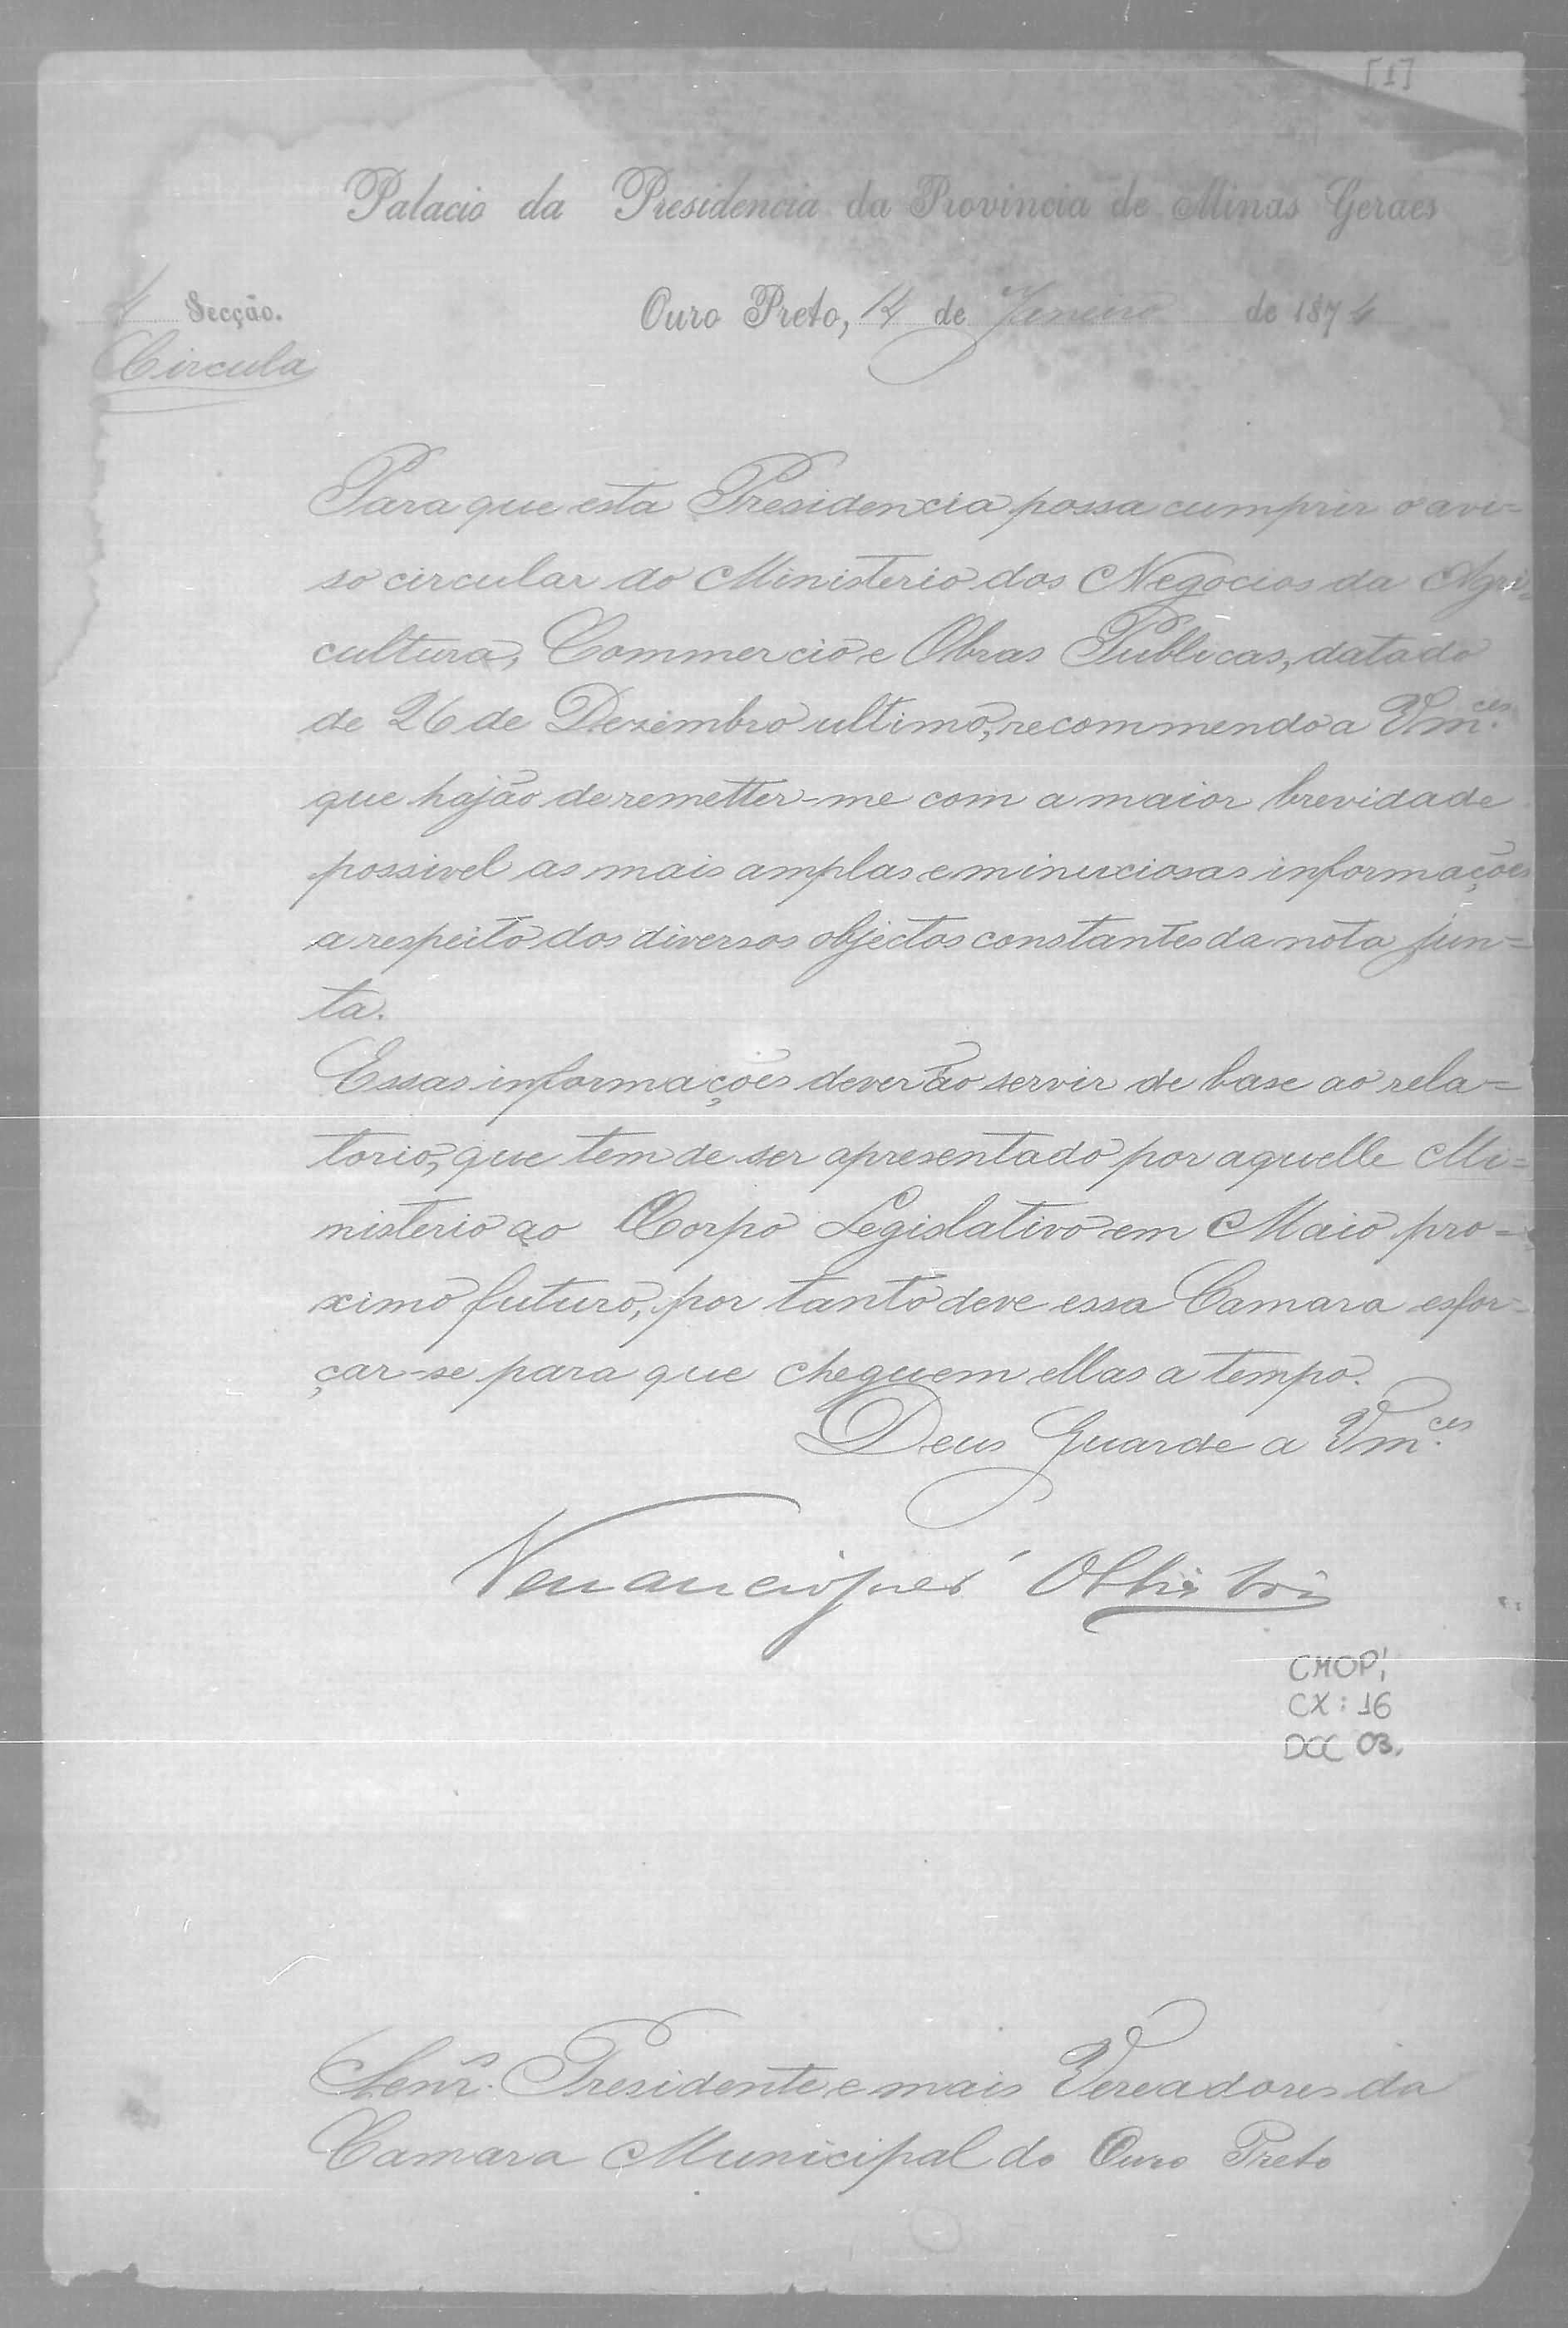 [1]
Palacio da Presidencia da Provincia de Minas Geraes
4 Secção.
Ouro Preto, 14 de Janeiro de 1874
Circular
Para que esta Presidencia possa cumprir o avi=
so circular do Ministerio dos Negocios da Agri=
cultura, Commercio e Obras Publicas, datado
de 26 de Dezembro ultimo, recommendo a Vm.ces
que hajão de remetter-me com a maior brevidade
possivel as mais amplas e minuciosas informações
a respeito dos diversos objectos constantes da nota jun=
ta.
Essas informações deverão servir de base ao rela=
torio, que tem de ser apresentado por aquelle Mi=
nisterio ao Corpo Legislativo em Maio pro=
ximo futuro, por tanto deve essa Camara esfor=
çar-se para que cheguem ellas a tempo.
Deus Guarde a Vm.ces
Venancio José
CMOP,
CX: 16
DOC 03.
Senr.s Presidente e mais Vereadores da
Camara Municipal do Ouro Preto